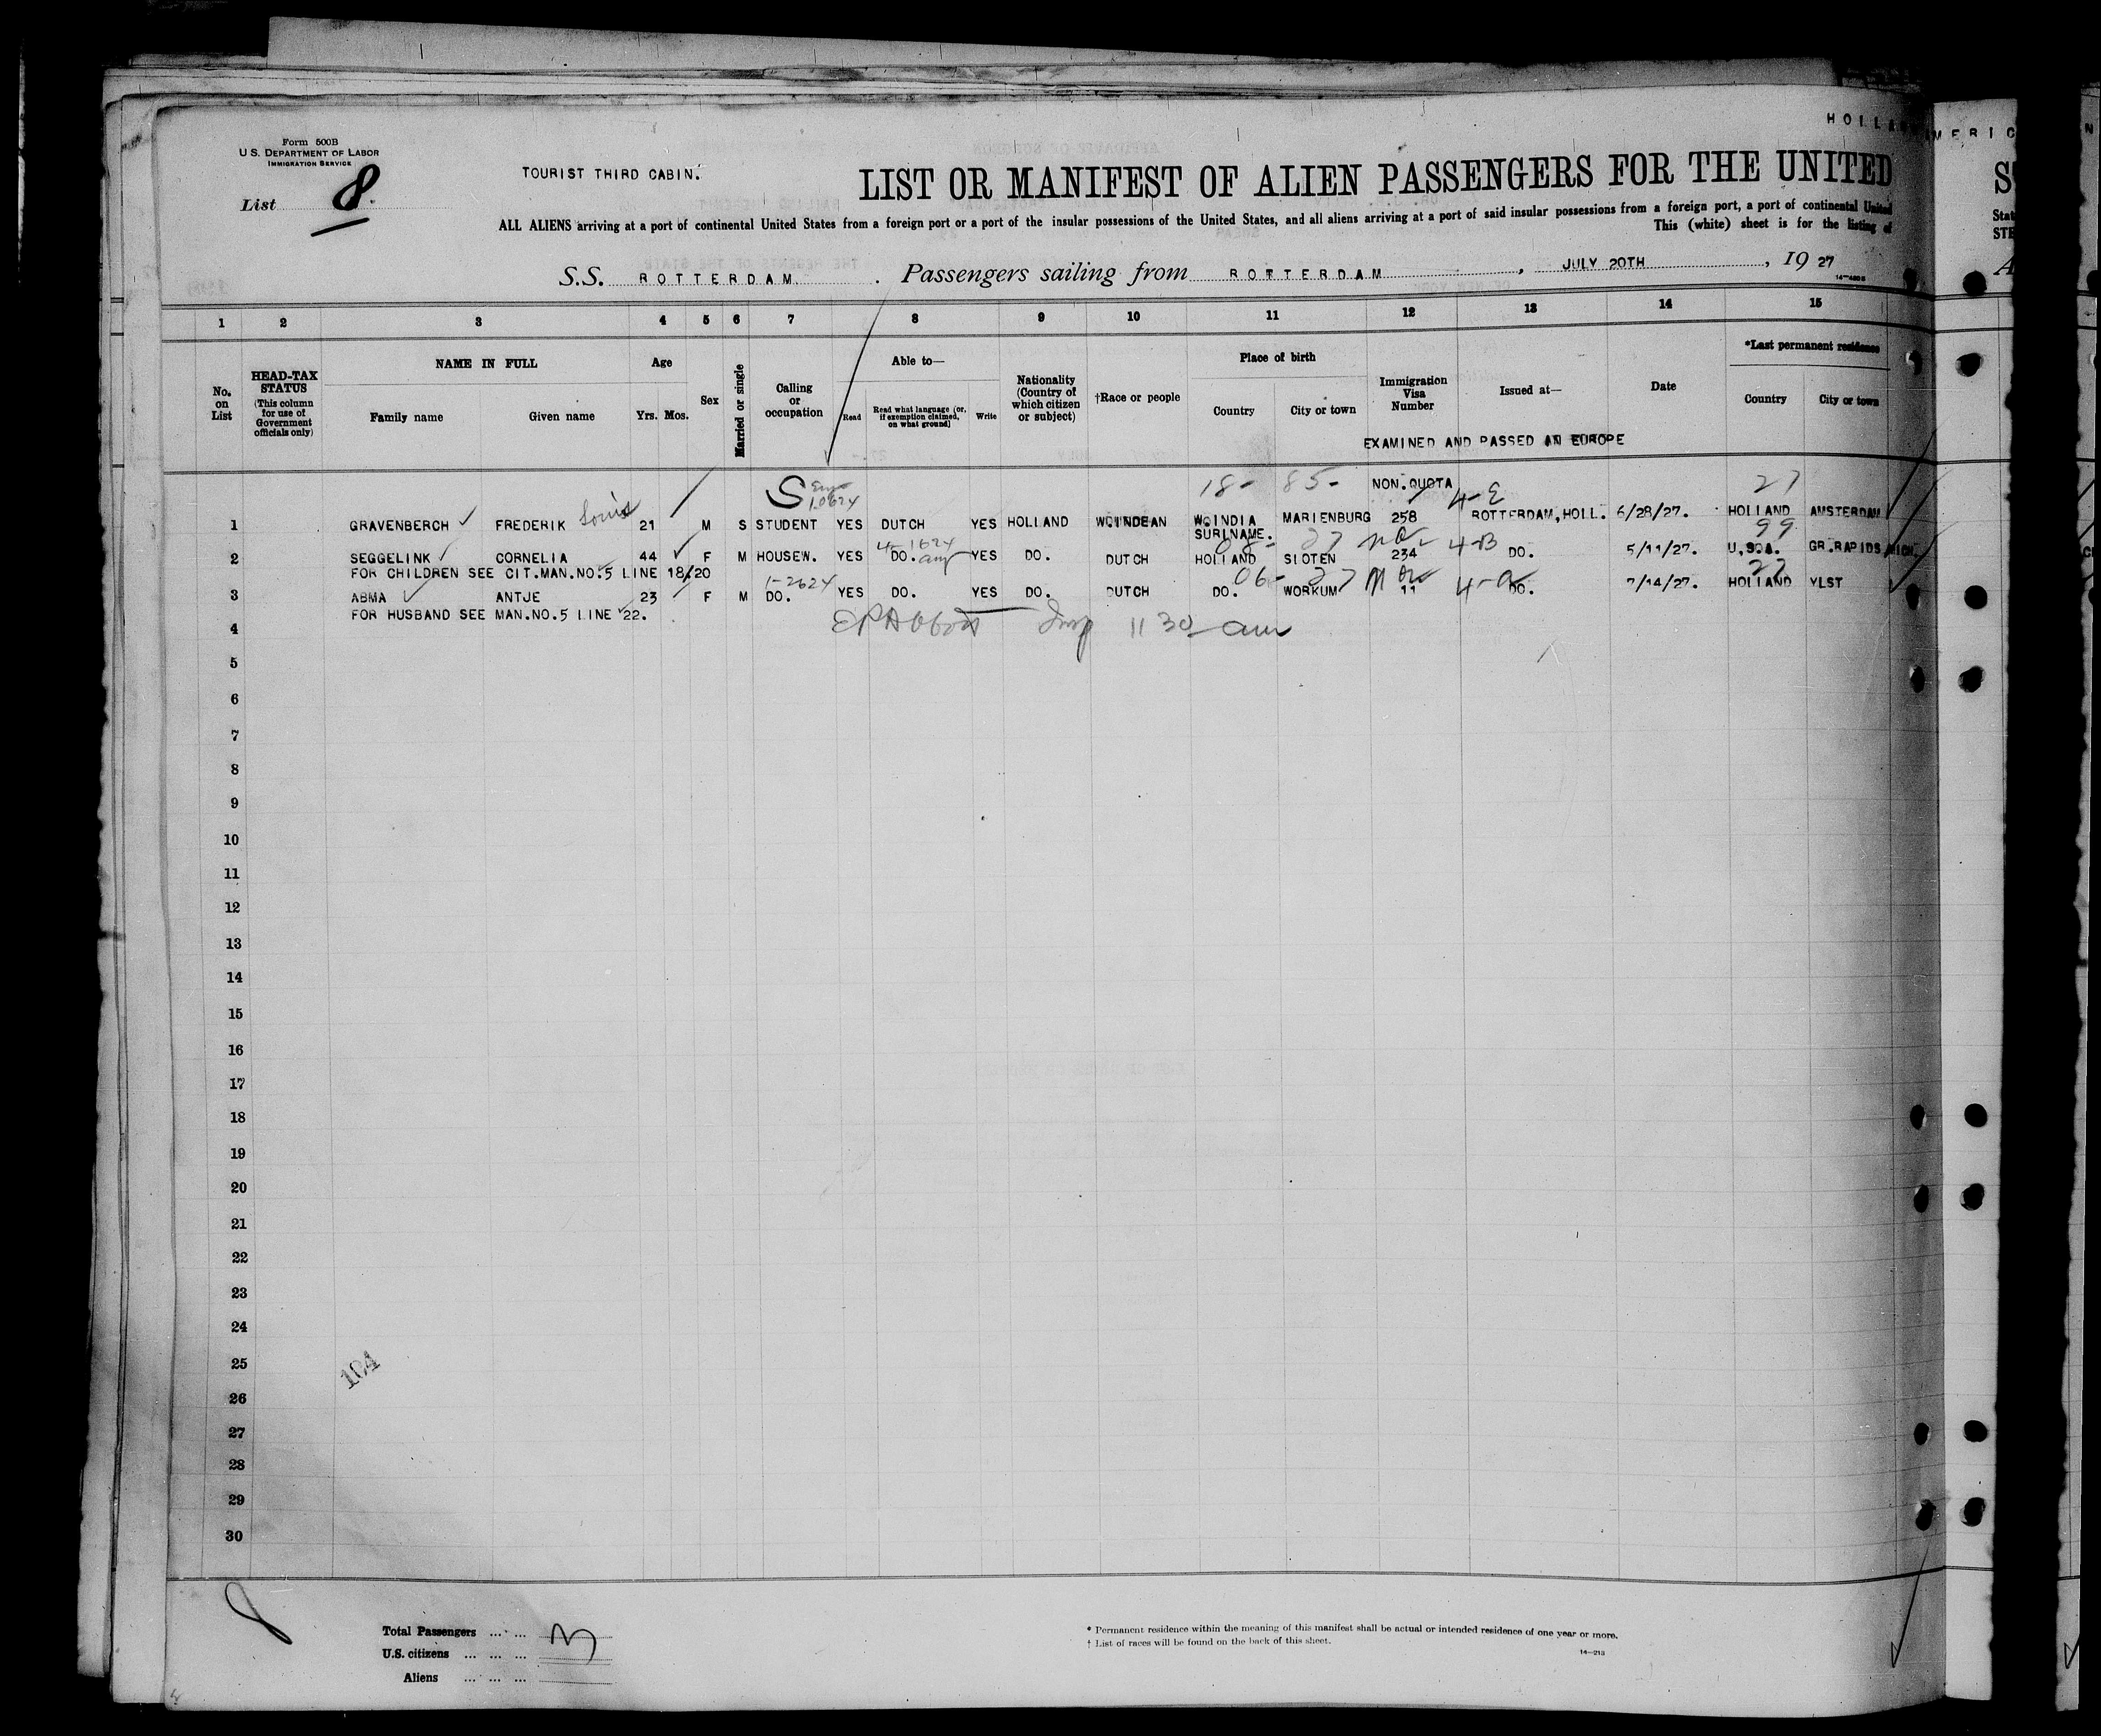 HOLLA
AMERIC
Form 500B
U.S. DEPARTMENT OF LABOR
IMMIGRATION SERVICE
List 8.
TOURIST THIRD CABIN.
LIST OR MANIFEST OF ALIEN PASSENGERS FOR THE UNITED
ALL ALIENS arriving at a port of continental United States from a foreign port or a port of the insular possessions of the United States, and all aliens arriving at a port of said insular possessions from a foreign port, a port of continental United
This (white) sheet is for the listing of
S.S. ROTTERDAM. Passengers sailing from ROTTERDAM, JULY 20TH, 19 27
1 2 3 4 5 6 7 8 9 10 11 12 13 14 15
No. on List
HEAD-TAX STATUS (This column for use of Government officials only)
NAME IN FULL
Family name Given name
Age
Yrs. Mos.
Sex
Married or single
Calling or occupation
Able to—
Read
Read what language (or, if exemption claimed, on what ground)
Write
Nationality (Country of which citizen or subject)
†Race or people
Place of birth
Country City or town
Immigration Visa Number
Issued at—
Date
*Last permanent residence
Country City or town
EXAMINED AND PASSED IN EUROPE
S 10624 18- 85- NON.QUOTA 4-E 27
1 GRAVENBERCH FREDERIK Louis 21 M S STUDENT YES DUTCH YES HOLLAND W.INDEAN W.INDIA MARIENBURG 258 ROTTERDAM,HOLL. 6/28/27. HOLLAND AMSTERDAM
SURINAME.
4-1624 08- 27 4-B 99
2 SEGGELINK CORNELIA 44 F M HOUSEW. YES DO. YES DO. DUTCH HOLLAND SLOTEN 234 DO. 5/11/27. U.S.A. GR.RAPIDS MICH.
FOR CHILDREN SEE CIT.MAN.NO.5 LINE 18/20
1-2624 06- 27 27
3 ABMA ANTJE 23 F M DO. YES DO. YES DO. DUTCH DO. WORKUM 11 DO. 7/14/27. HOLLAND YLST
FOR HUSBAND SEE MAN.NO.5 LINE 22.
4 Insp 11 30 am
5
6
7
8
9
10
11
12
13
14
15
16
17
18
19
20
21
22
23
24
25
104
26
27
28
29
30
Total Passengers ... ... 3
U.S. citizens ... ... ...
Aliens ... ... ...
* Permanent residence within the meaning of this manifest shall be actual or intended residence of one year or more.
† List of races will be found on the back of this sheet.
14—213